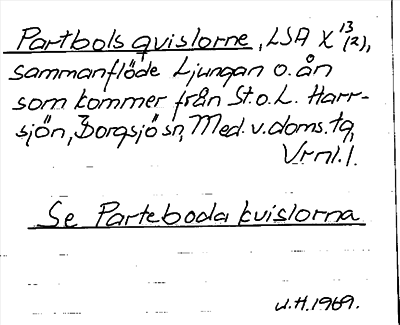 Partbols qvislorne, LSA X 13 (2),
sammanflöde Ljungan o. ån
som kommer från St. o. L. Harr-
sjön, Borgsjö sn, Med. v. doms. tg,
Vrnl.
Se Parteboda kvislorna
U.H. 1969.